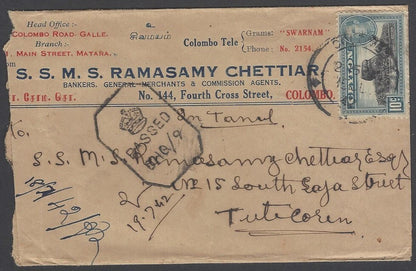 Head Office:-
COLOMBO ROAD, GALLE.
Branch:-
MAIN STREET, MATARA.
Colombo Tele
Grams: "SWARNAM"
Phone: No. 2154.
S. S. M. S. RAMASAMY CHETTIAR,
BANKERS, GENERAL MERCHANTS & COMMISSION AGENTS.
No. 144, Fourth Cross Street, COLOMBO,
CEYLON
PASSED
In Tamil
S. S. M. S. Ramasamy Chettiar Esqr
15 South Raja Street
Tuticoren
19.7.42